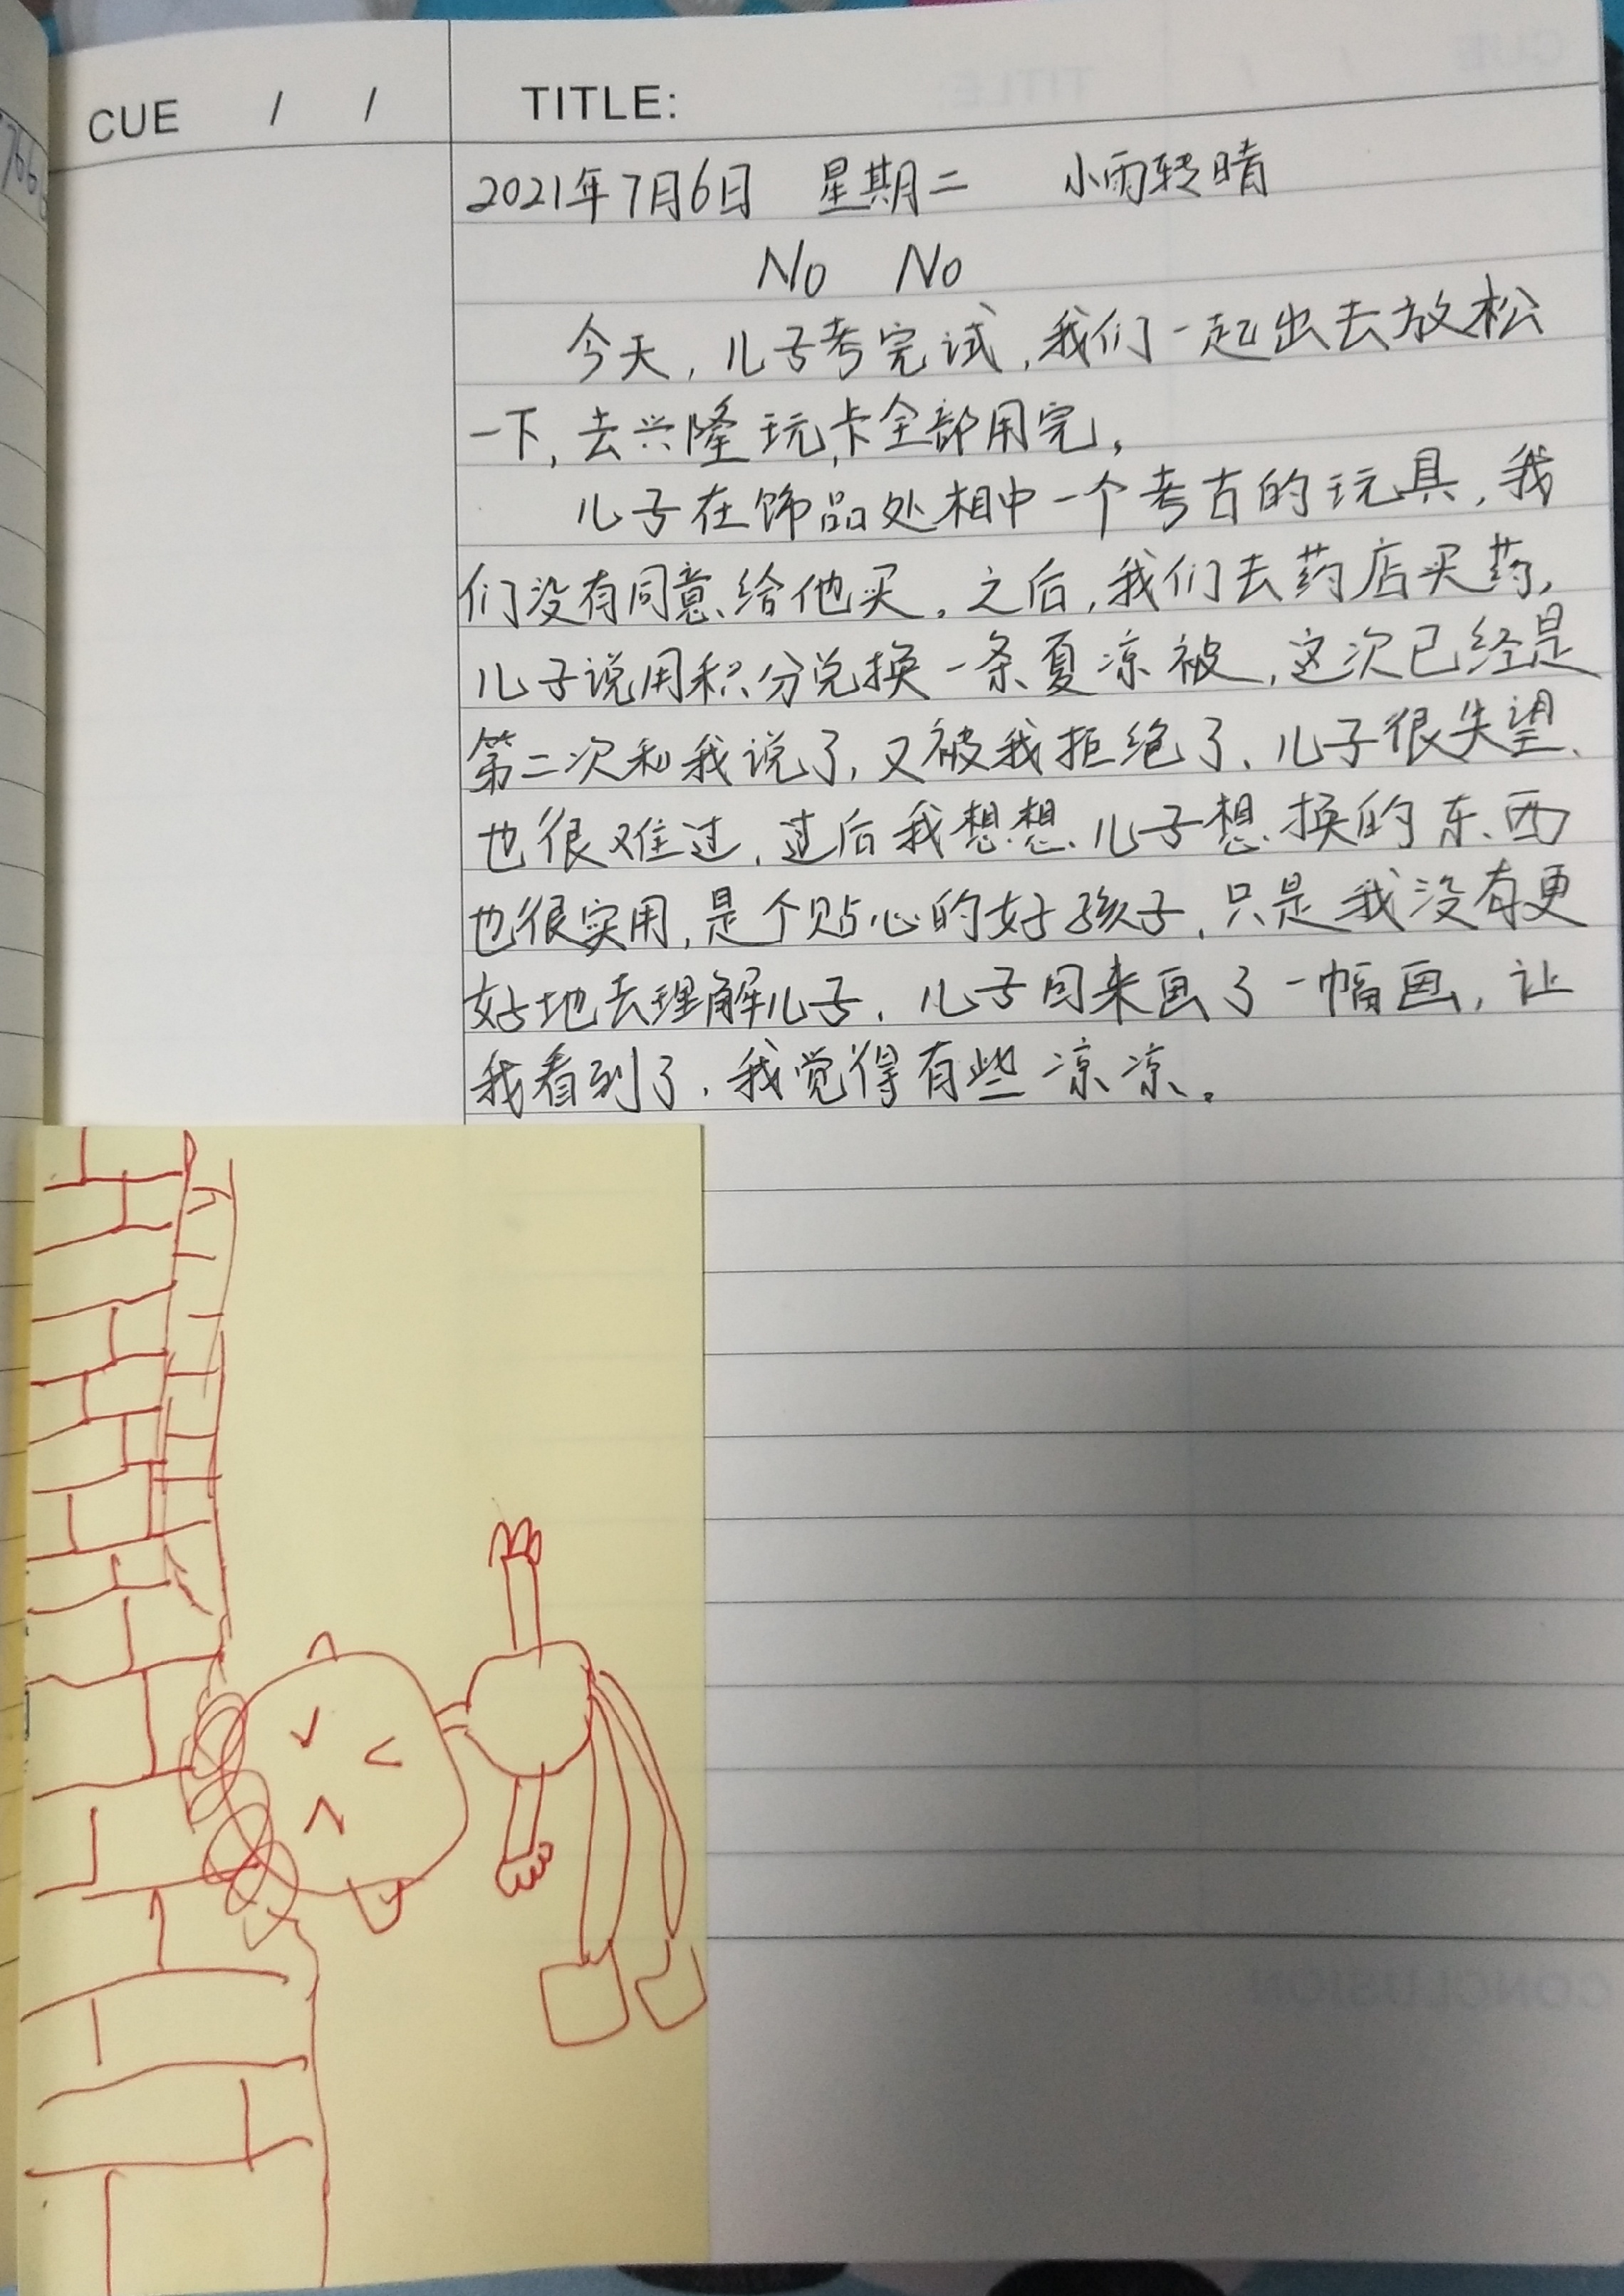 CUE / / TITLE:
2021年7月6日 星期二 小雨转晴
No No
今天,儿子考完试,我们一起出去放松
一下,去兴隆玩,卡全部用完。
儿子在饰品处相中一个考古的玩具,我
们没有同意给他买。之后,我们去药店买药,
儿子说用积分兑换一条夏凉被,这次已经是
第二次和我说了,又被我拒绝了、儿子很失望、
也很难过,过后我想想、儿子想换的东西
也很实用,是个贴心的好孩子,只是我没有更
好地去理解儿子,儿子回来画了一幅画,让
我看到了,我觉得有些凉凉。